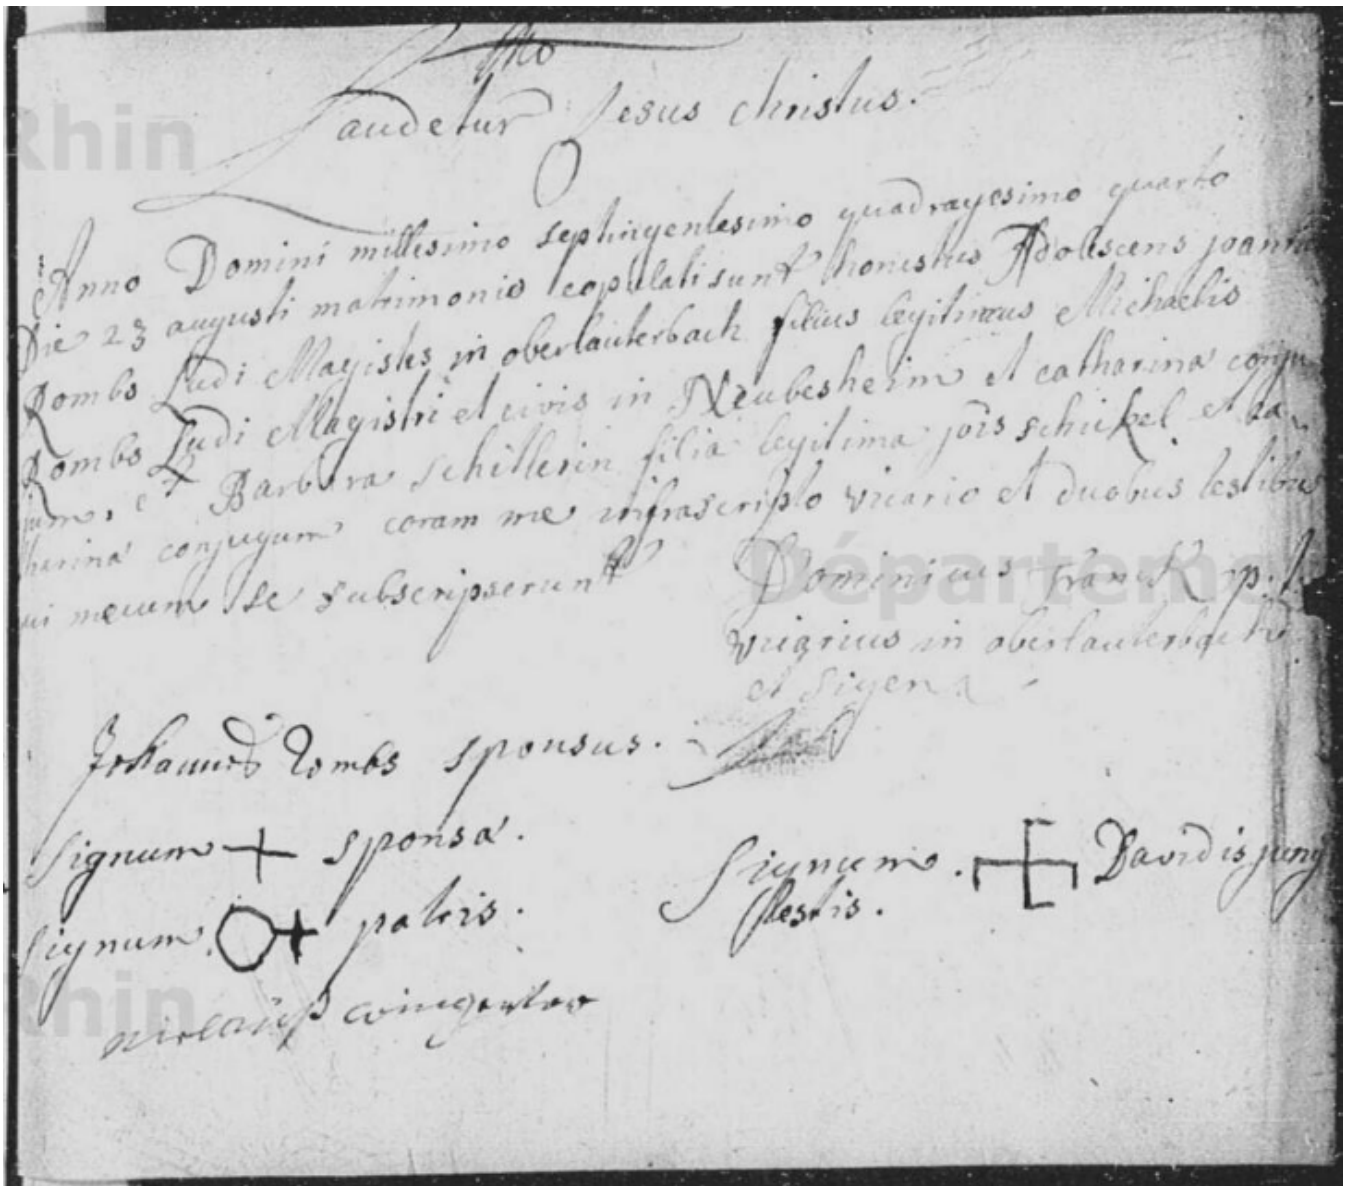 Laudetur Jesus Christus.
Anno Domini millesimo septingentesimo quadragesimo quarto
Die 23 augusti matrimonio copulati sunt honestus Adolescens joannes
Rombs Ludi Magister in oberlauterbach filius legitimus Michaelis
Rombs Ludi Magistri et civis in Neubesheim et catharina conju
gum, et Barbara schillerin filia legitima jois schikel et ca
tharina conjugum coram me infrascripto vicario et duobus testibus
qui mecum se subscripserunt
Dominicus franck p.
vicarius in oberlauterbach
et sigen
Johannes Rombs sponsus.
signum + sponsa.
signum patris.
signum. Davidis jung
testis.